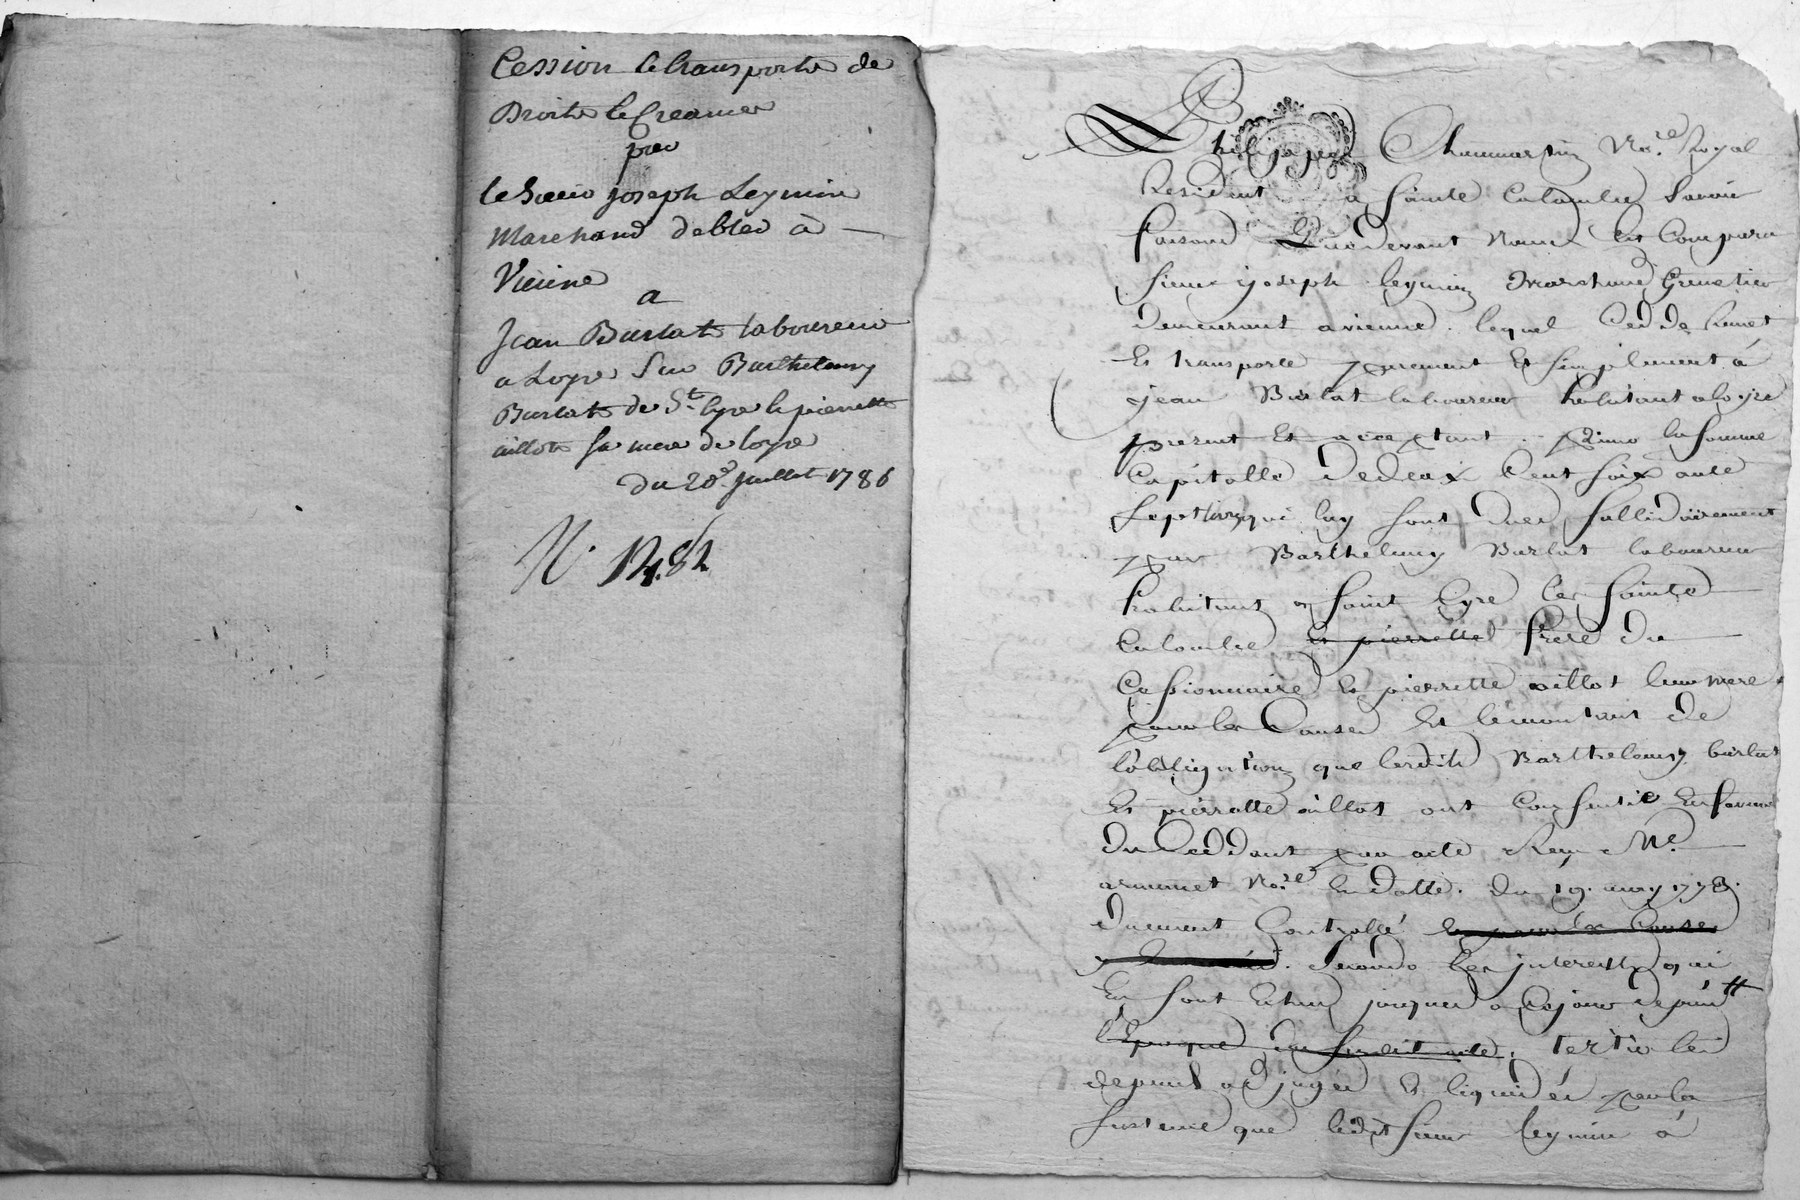 Cession et transporte de
Droits et Creances
par
le Sieur joseph Leymin
Marchand de bled à
Vienne
a
Jean Burlat laboureur
a Loyre Sur Barthelemy
Burlat de St. Cyre et pierrette
aillot sa mere de loyre
du 28e. juillet 1786
N. 1482
Philippe Chaumartin No.re Royal
Résident a Sainte Colombe Savoir
faisons Que Devant Nous Est Comparu
Sieur joseph leymin Marchand Grenetier
demeurant a vienne. lequel Cedde Remet
Et transporte purement Et simplement à
jean Burlat laboureur habitant a loyre
present Et acceptant. Primo la somme
Capitalle De deux Cent soixante
Sept livres qui luy sont dues sollidairement
par Barthelemy Burlat laboureur
habitant a Saint Cyre les Sainte
Colombe et pierrette frere du
Cessionnaire Et pierrette aillot leur mere
pour les Causes Et le montant de
l'obligation que lesdits Barthelemy burlat
Et pierrette aillot ont Consentie En faveur
du Ceddant par acte Reçu Me.
armanet No.re En datte. du 19. may 1778.
duement Controllé et pour les Causes
. Secundo les interests qui
En sont Echus jusques a Ce jour depuis
l'Epoque du susdit acte. tertio les
depens adjugés Et liquidés par la
Sentence que ledit sieur leymin à